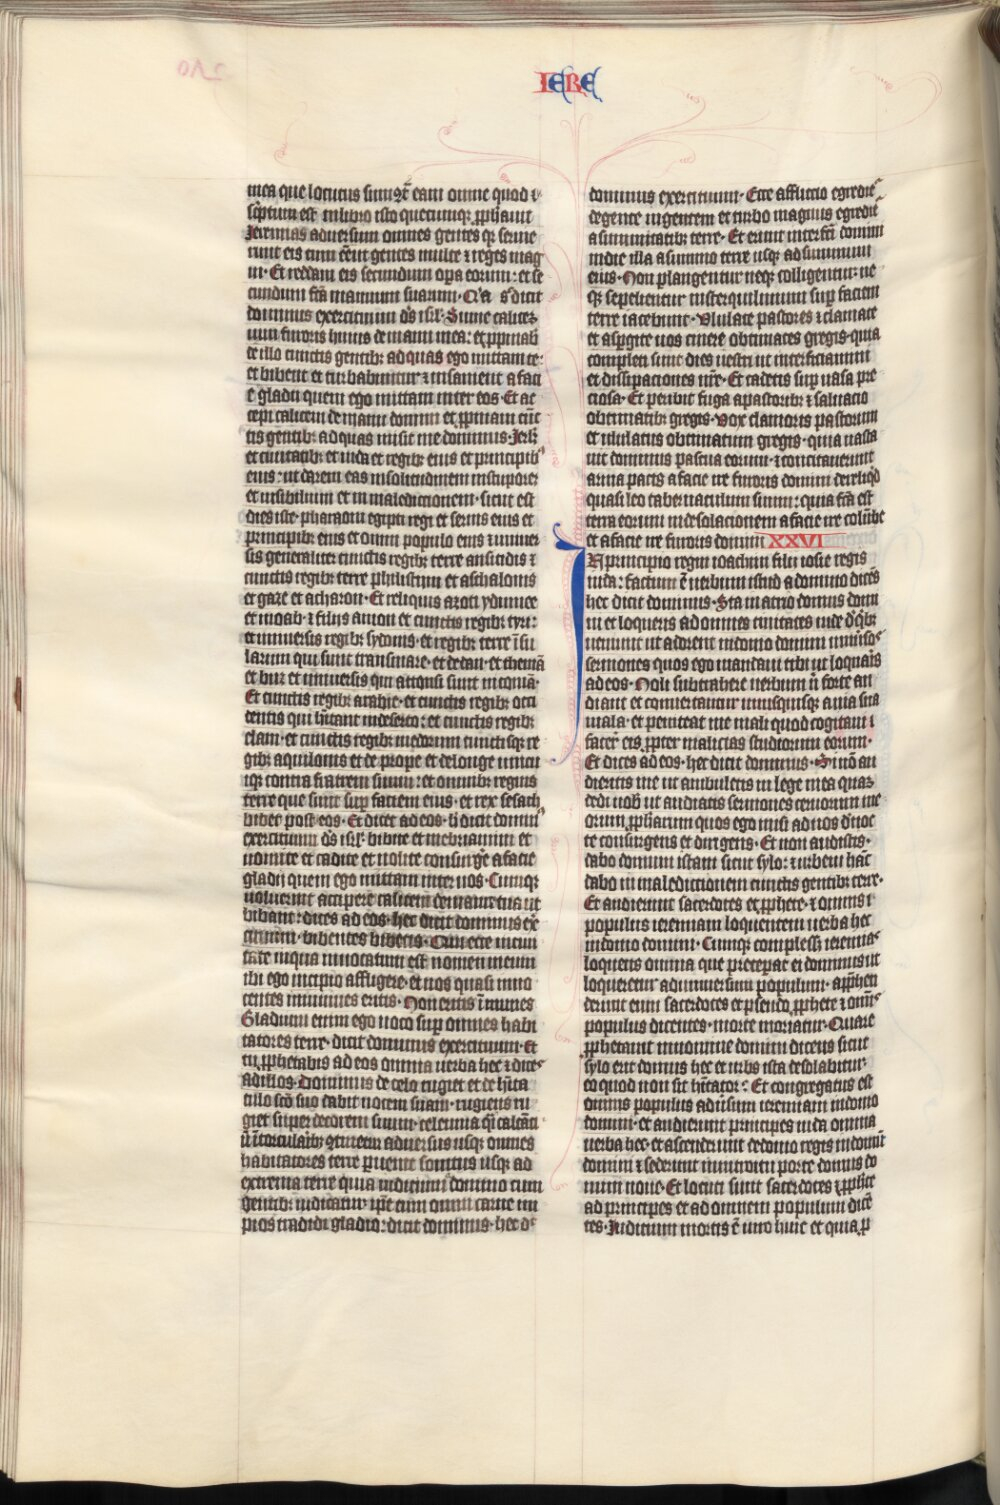 IERE
mea que locutus sum 9tͣ eam omne quod i
scͥptum est in libro isto quecumqꝫ ꝓphauit
Jeremias adversum omnes gentes qꝫ seruie
runt eis cum eent gentes multe ⁊ reges mag
ni· Et reddam eis secundum opa eorum: et se
cundum fcͣa manuum suarum· Qͥa dicit
dominus exercituum ds isrl· Sume calicez
uini furoris huius de manu mea: et ꝓpinabͭ
de illo cunctis gentibꝫ ad quas ego mittam te:
et bibent et turbabuntur ⁊ insanient a faci
e gladii quem ego mittam inter eos· Et ac
cepi calicem de manu domini et ꝓpinaui cuc
tis gentibꝫ ad quas misit me dominus· Jerlm
et ciuitatibꝫ et iuda et regibꝫ eius et principibꝫ
eius: ut darem eas in solitudinem in stuporez
et in sibilum et in maledictionem· sicut est
dies iste· pharaoni egipti regi et seruis eius et
principibꝫ eius et omni populo eius ⁊ uniuer
sis generaliter cunctis regibꝫ terre ausitidis ⁊
cunctis regibꝫ terre philistiim et aschalonis
et gaze et acharon· Et reliquis azoti ydumee
et moab· ⁊ filiis amon et cunctis regibꝫ tyri:
et uniuersis regibꝫ sydonis· et regibꝫ terre isu
larum qui sunt trans mare· et dedan· et thema
et buz et uniuersis qui attonsi sunt in comā·
Et cunctis regibꝫ arabie· et cunctis regibꝫ occi
dentis qui hitant in deserto: et cunctis regibꝫ
elam· et cunctis regibꝫ medorum cunctisqꝫ re
gibꝫ aquilonis et de prope et de longe unicu
iqꝫ contra fratrem suum: et omnibꝫ regnis
terre que sunt sup faciem eius· et rex sesach
bibet post eos· Et dices ad eos· h dicit domin
exercituum ds isrl· bibite et inebriamini et
uomite et cadite et nolite consurgere a facie
gladij quem ego mittam inter uos· Cumqꝫ
noluerint accipere calicem de manu tua ut
bibant: dices ad eos· hec dicit dominus ex
cituum· bibentes bibetis· Quia ecce in ciui
tate in qua inuocatum est nomen meum
ibi ego incipio affligere· et uos quasi inno
centes inmunes eritis· Non eritis imunes
Gladium enim ego uoco sup omnes habi
tatores terre· dicit dominus exercituum· Et
tu ꝓphetabis ad eos omnia uerba hec ⁊ dices
ad illos· Dominus de celo rugiet et de hita
culo sco suo dabit uocem suam· rugiens ru
giet super decorem suum· celeuma qͥ calcāti
torcularibꝫ concinetur aduersus usqꝫ omnes
habitatores terre puenit sonitus usqꝫ ad
extrema terre quia iudicium domino cum
gentibꝫ iudicatur ipe cum omni carne im
pios tradidi gladio: dicit dominus· hec d
dominus exercituum· Ecce afflictio egredit
de gente in gentem et turbo magnus egredit
a summitatibꝫ terre· Et erunt interfci domini
in die illa a summo terre usqꝫ ad summum
eius· Non plangentur neqꝫ colligentur: ne
qꝫ sepelientur in sterquilinium sup faciem
terre iacebunt· Ululate pastores ⁊ clamate
et aspgite uos cinere obtimates gregis· quia
completi sunt dies uestri ut interficiamini
et dissipationes ure· Et cadetis sup uasa pre
ciosa· Et peribit fuga a pastoribꝫ ⁊ saluacio
obtimatibꝫ gregis· Uox clamoris pastorum
et ululatus obtimatum gregis· quia uasta
uit dominus pascua eorum· ⁊ conticuerunt
arua pacis a facie ire furoris domini dereliqͥd
quasi leo tabernaculum suum: quia fcͣa est
terra eorum in desolacionem a facie ire colūbe
et a facie ire furoris domini XXVI
IN principio regni ioachim filii iosie regis
iuda: factum e uerbum istud a domino dices
hec dicit dominus· Sta in atrio domus domi
ni et loqueris ad omnes ciuitates iude d qͥbꝫ
ueniunt ut adorent in domo domini uniusos
sermones quos ego mandaui tibi ut loquaris
ad eos· Noli subtrahere uerbum si forte au
diant et conuertantur unusquisqꝫ a uia sua
mala· et peniteat me mali quod cogitaui
facere eis ꝓpter malicias studiorum eorum·
Et dices ad eos· hec dicit dominus· Si nō au
dieritis me ut ambuletis in lege mea quaz
dedi uobͥ ut audiatis sermones seruorum me
orum ꝓpharum quos ego misi ad uos d noc
te consurgens et dirigens· Et non audistis·
dabo domum istam sicut sylo: ⁊ urbem hāc
dabo in maledictionem cunctis gentibꝫ terre·
Et audierunt sacerdotes et ꝓphete· ⁊ omnis
populus ieremiam loquentem uerba hec
in domo domini· Cumqꝫ complesset ieremias
loquens omnia que preceperat ei dominus ut
loqueretur ad uniuersum populum· apphen
derunt eum sacerdotes et pseudo ꝓphete ⁊ omis
populus dicentes· morte moriatur· Quare
ꝓphetauit in nomine domini dicens sicut
sylo erit domus hec et urbs ista desolabitur·
eo quod non sit hitator: Et congregatus est
omnis populus aduersum ieremiam in domo
domini· et audierunt principes iuda omnia
uerba hec· et ascenderunt de domo regis in domū
domini ⁊ sederunt in introitu porte domus do
mini noue· Et locuti sunt sacerdotes ⁊ ꝓphete
ad principes et ad omnem populum dicē
tes· Judicium mortis e uiro huic et quia ꝓ